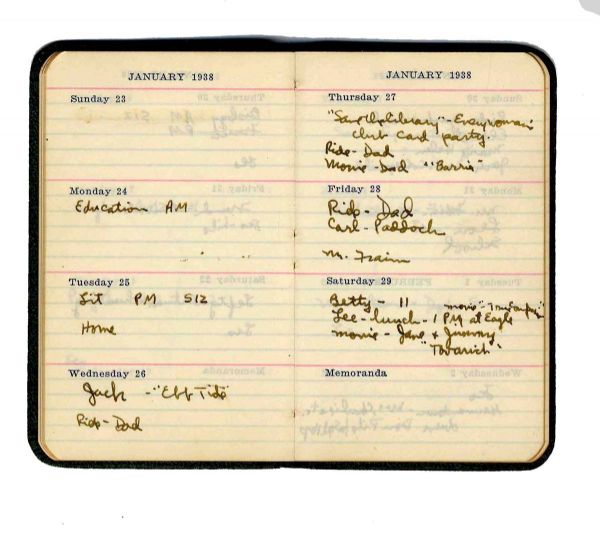 JANUARY 1938
Sunday 23
Monday 24
Education AM
Tuesday 25
Lit PM 512
Home
Wednesday 26
Jack - "Ebb Tide"
Ride - Dad
JANUARY 1938
Thursday 27
"Save the Library" - Everywoman's
club card party.
Ride - Dad
Movie - Dad "Barrie"
Friday 28
Ride - Dad
Carl - Paddock
M.
Saturday 29
Betty - 11 movie -
Lee - lunch - 1 PM at Eagle
movie - Jane + Jimmy
"Tovarich"
Memoranda